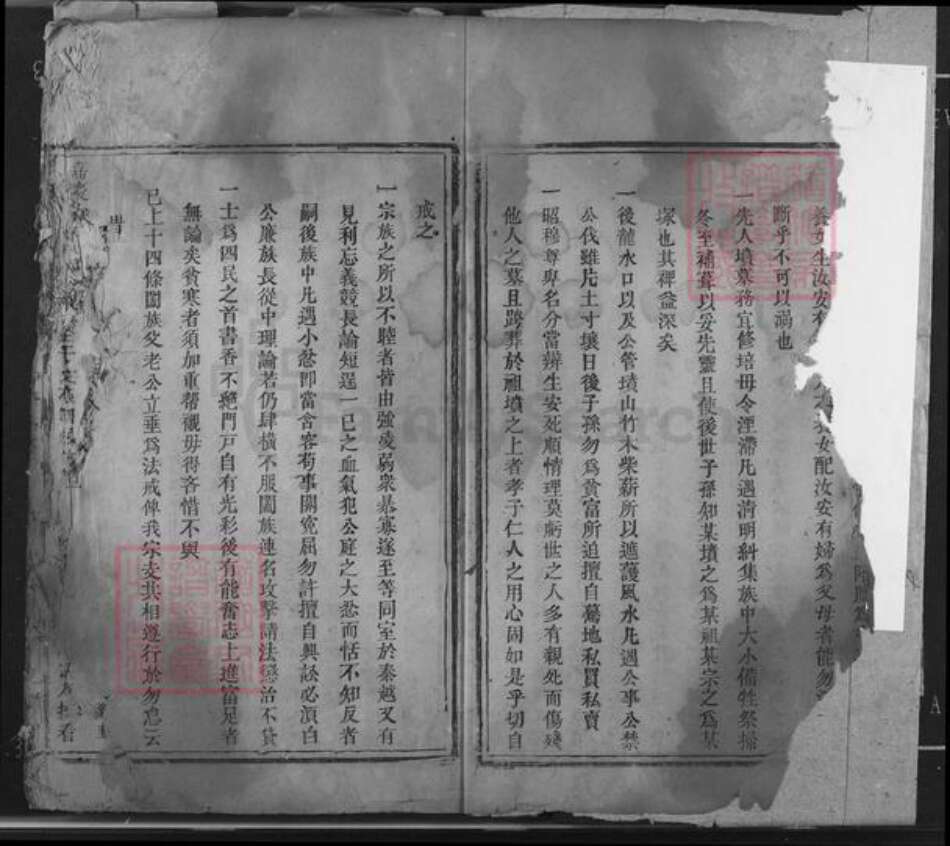 養女生汝安有女配汝安有婦為父母者能勿
斷乎不可以溺也
一先人墳墓務宜修培毋令湮滯凡遇清明糾集族中大小備牲祭掃
冬至補葺以妥先靈且使後世子孫知某墳之為某祖某宗之為某
塚也其裨益深矣
一後龍水口以及公管墳山竹木柴薪所以遮護風水凡遇公事公禁
公伐雖片土寸壤日後子孫勿為貧富所迫擅自驀地私買私賣
一昭穆尊卑名分當辨生安死順情理莫虧世之人多有親死而傷殘
他人之墓且跨葬於祖墳之上者孝子仁人之用心固如是乎切自
戒之
一宗族之所以不睦者皆由強凌弱衆暴寡遂至等同室於秦越又有
見利忘義競長論短逞一己之血氣犯公庭之大憝而恬不知反者
嗣後族中凡遇小忿即當含容苟事關冤屈勿許擅自興訟必須白
公廉族長從中理論若仍肆橫不服闔族連名攻擊請法懲治不貸
一士為四民之首書香不絕門戸自有光彩後有能奮志上進富足者
無論矣貧寒者須加重帮襯毋得吝惜不與
已上十四條闔族父老公立垂為法戒俾我宗支共相遵行於勿怠云